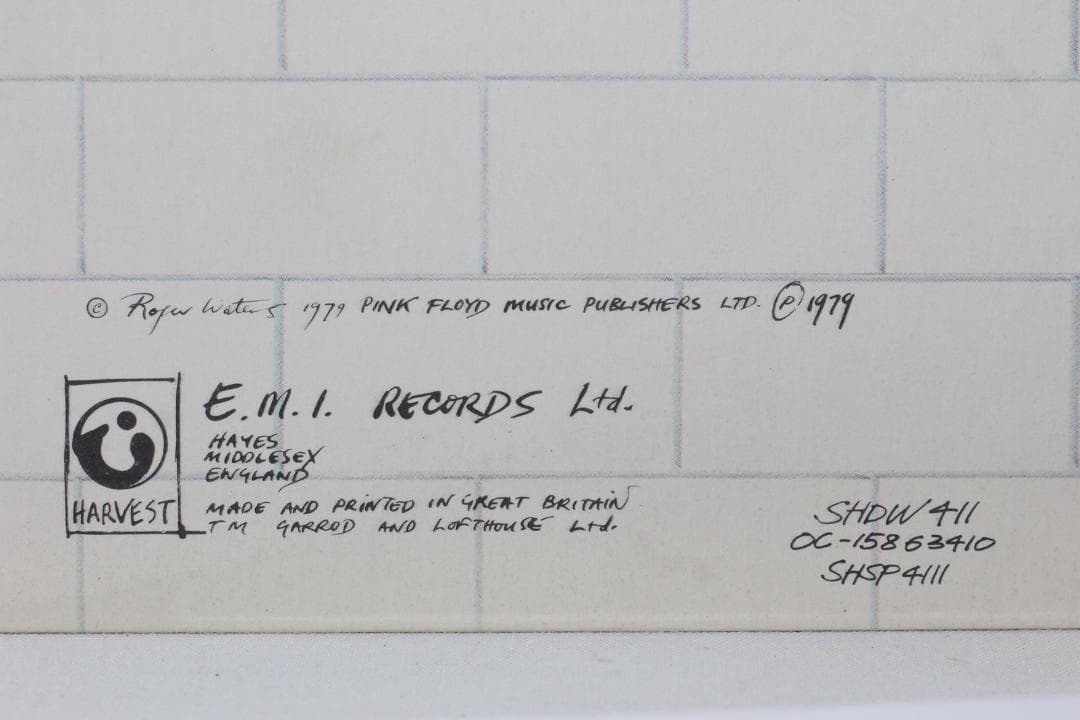 © Roger Waters 1979 PINK FLOYD MUSIC PUBLISHERS LTD. ℗ 1979
E.M.I. RECORDS Ltd.
HAYES
MIDDLESEX
ENGLAND
HARVEST
MADE AND PRINTED IN GREAT BRITAIN
TM GARROD AND LOFTHOUSE Ltd.
SHDW 411
OC-15863410
SHSP 4111